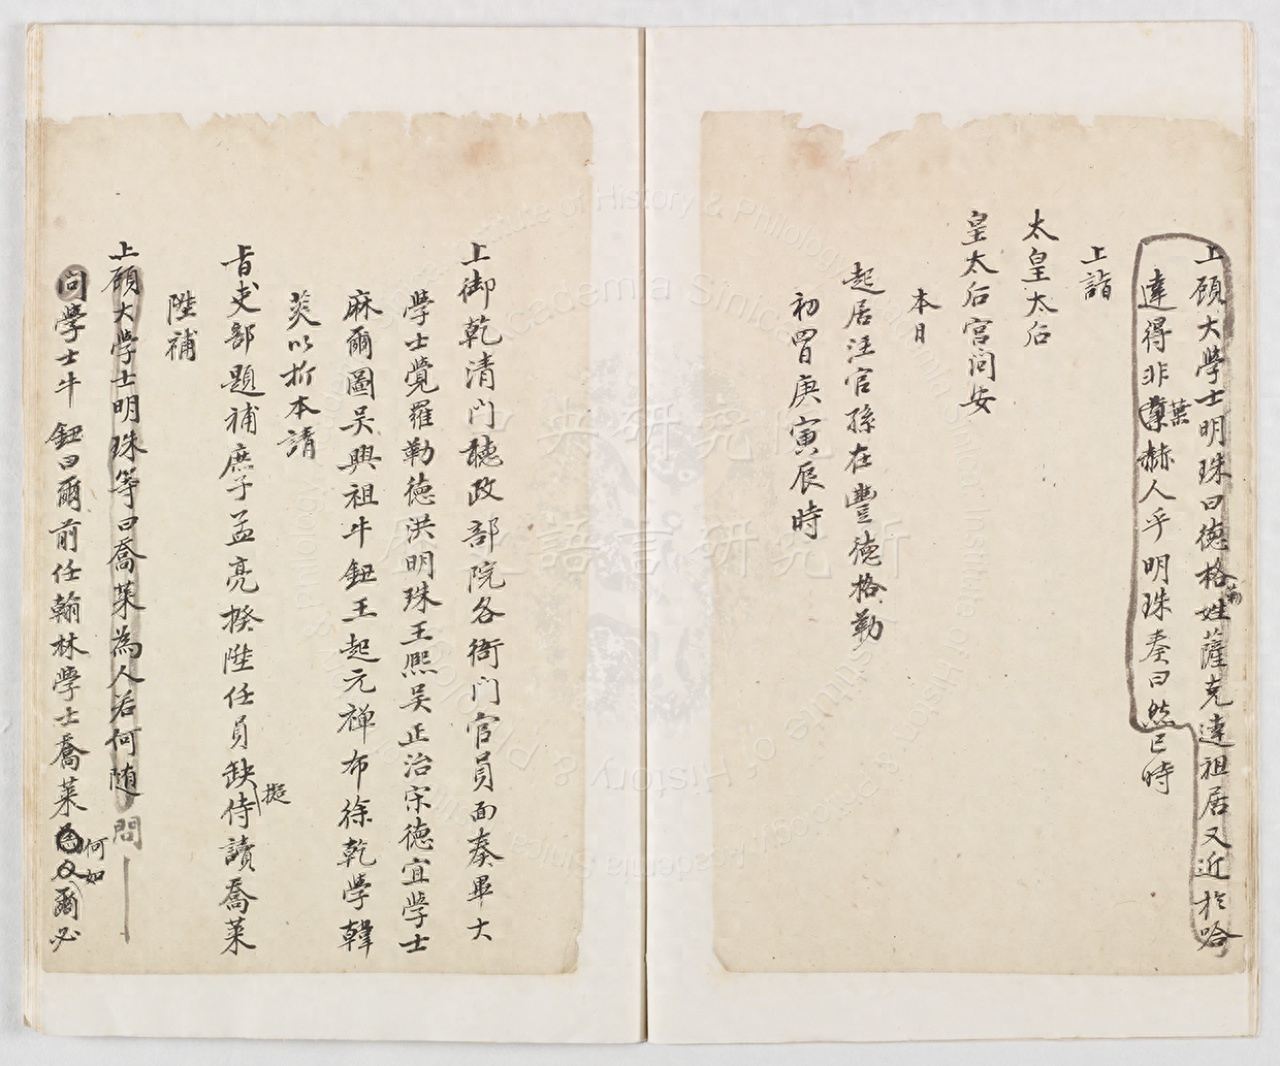 上顧大學士明珠曰德格姓薩克達祖居又近於哈
達得非葉赫人乎明珠奏曰然巳時
上詣
太皇太后
皇太后宮問安
本日
起居注官孫在豐德格勒
初四日庚寅辰時
上御乾清門聽政部院各衙門官員面奏畢大
學士覺羅勒德洪明珠王熙吳正治宋德宜學士
麻爾圖吳興祖牛鈕王起元禪布徐乾學韓
菼以折本請
旨吏部題補庶子孟亮揆陞任員缺擬侍讀喬萊
陞補
上顧大學士明珠等曰喬萊為人若何随問
問學士牛鈕曰爾前任翰林學士喬萊何如爾必
中央研究院
歷史語言研究所
Institute of History & Philology Academia Sinica